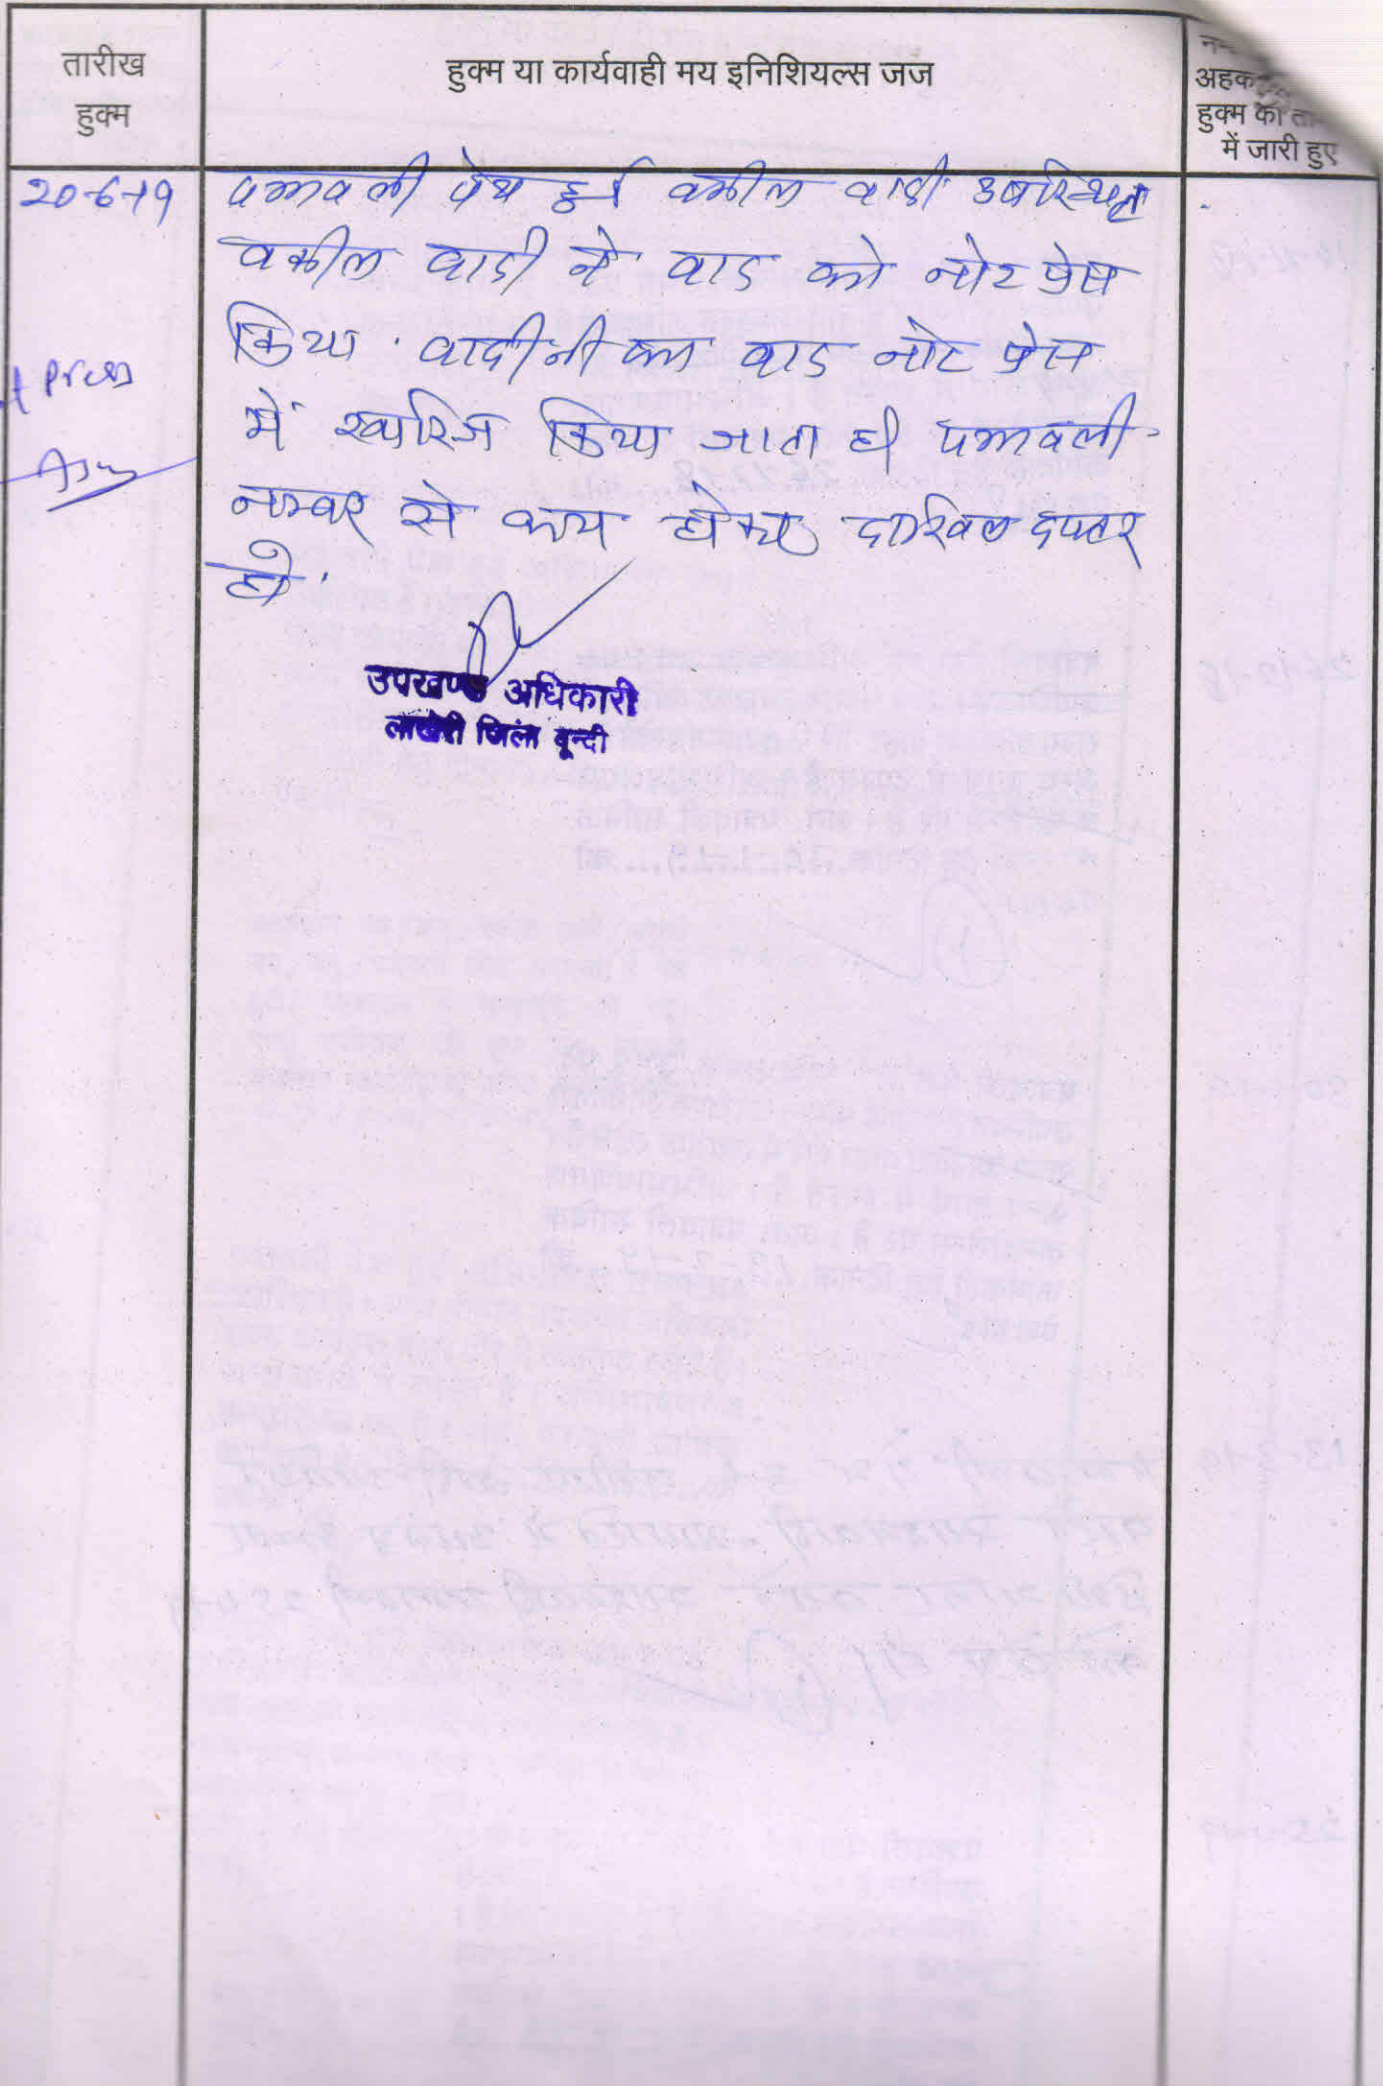 तारीख
हुक्म
हुक्म या कार्यवाही मय इनिशियल्स जज
अहक
हुक्म की
में जारी हुए
20-6-19
पत्रावली पेश हुई वकील वादी उपस्थित
वकील वादी ने वाद को नोट प्रेस
किया. वादीनी का वाद नोट प्रेस
में खारिज किया जाता है। पत्रावली
नम्बर से कम होकर दाखिल दफ्तर
हो.
Press
उपखण्ड अधिकारी
लाखेरी जिला बून्दी